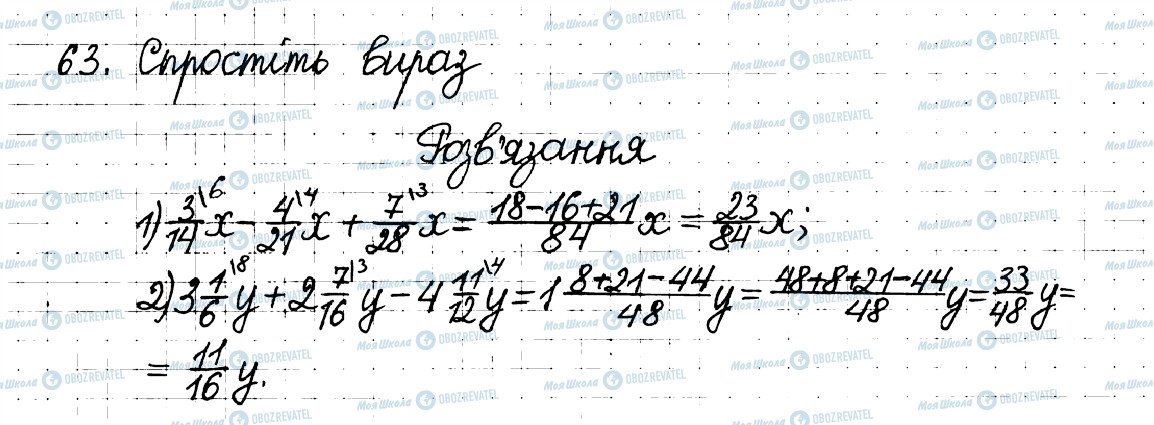 63. Спростіть вираз
Розв'язання
1) 3/14\6 x - 4/21\4 x + 7/28\3 x = (18-16+21)/84 x = 23/84 x;
2) 3 1/6\8 y + 2 7/16\3 y - 4 11/12\4 y = 1 (8+21-44)/48 y = (48+8+21-44)/48 y = 33/48 y =
= 11/16 y.